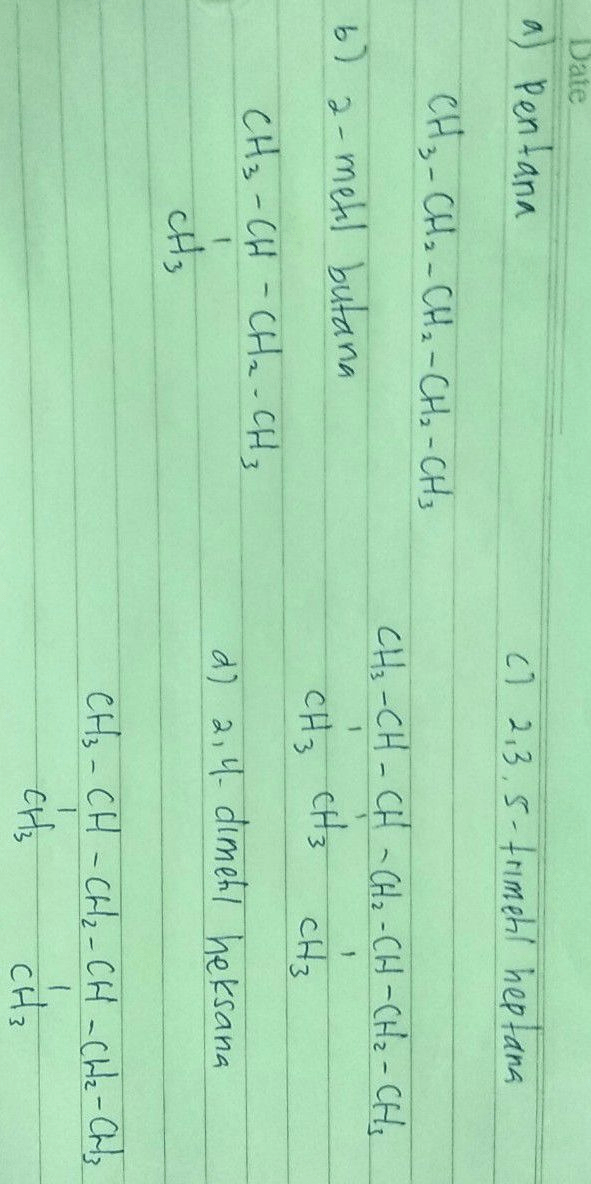 Date
a) Pentana
CH3-CH2-CH2-CH2-CH3
b) 2-metil butana
CH3-CH-CH2-CH3
CH3
c) 2,3,5-trimetil heptana
CH3-CH-CH-CH2-CH-CH2-CH3
CH3 CH3 CH3
d) 2,4-dimetil heksana
CH3-CH-CH2-CH-CH2-CH3
CH3 CH3